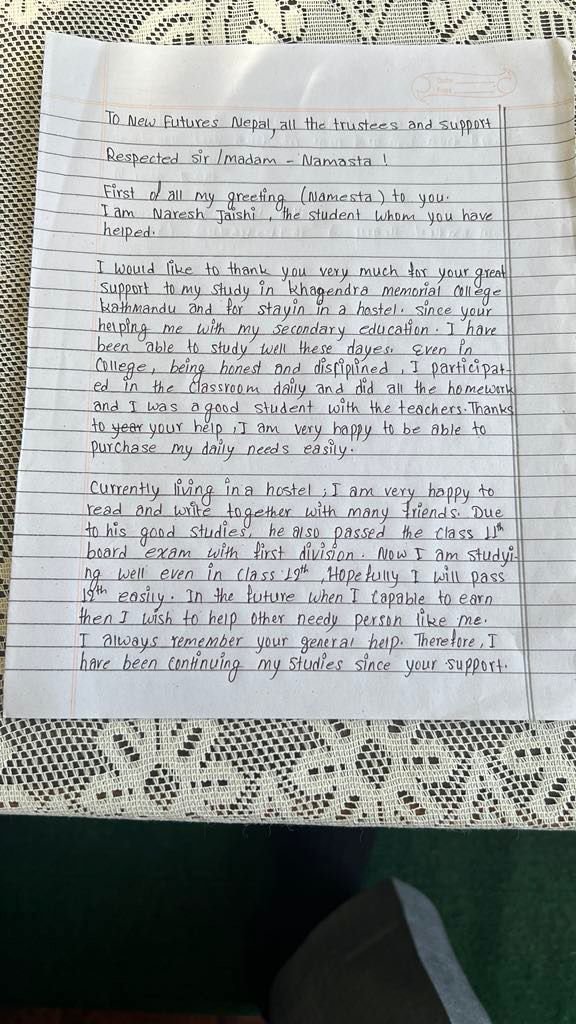 To New Futures Nepal, all the trustees and support
Respected sir /madam - Namasta !
First of all my greeting (Namesta) to you.
I am Naresh Jaishi, the student whom you have
helped.
I would like to thank you very much for your great
support to my study in khagendra memorial college
kathmandu and for stayin in a hostel. since your
helping me with my secondary education. I have
been able to study well these dayes. Even in
College, being honest and disfiplined, I participat-
ed in the classroom daily and did all the homework
and I was a good student with the teachers. Thanks
to year your help, I am very happy to be able to
purchase my daily needs easily.
Currently living in a hostel, I am very happy to
read and write together with many friends. Due
to his good studies, he also passed the class 11th
board exam with first division. Now I am studyi-
ng well even in class 12th, Hopefully I will pass
12th easily. In the future when I capable to earn
then I wish to help other needy person like me.
I always remember your general help. Therefore, I
have been continuing my studies since your support.